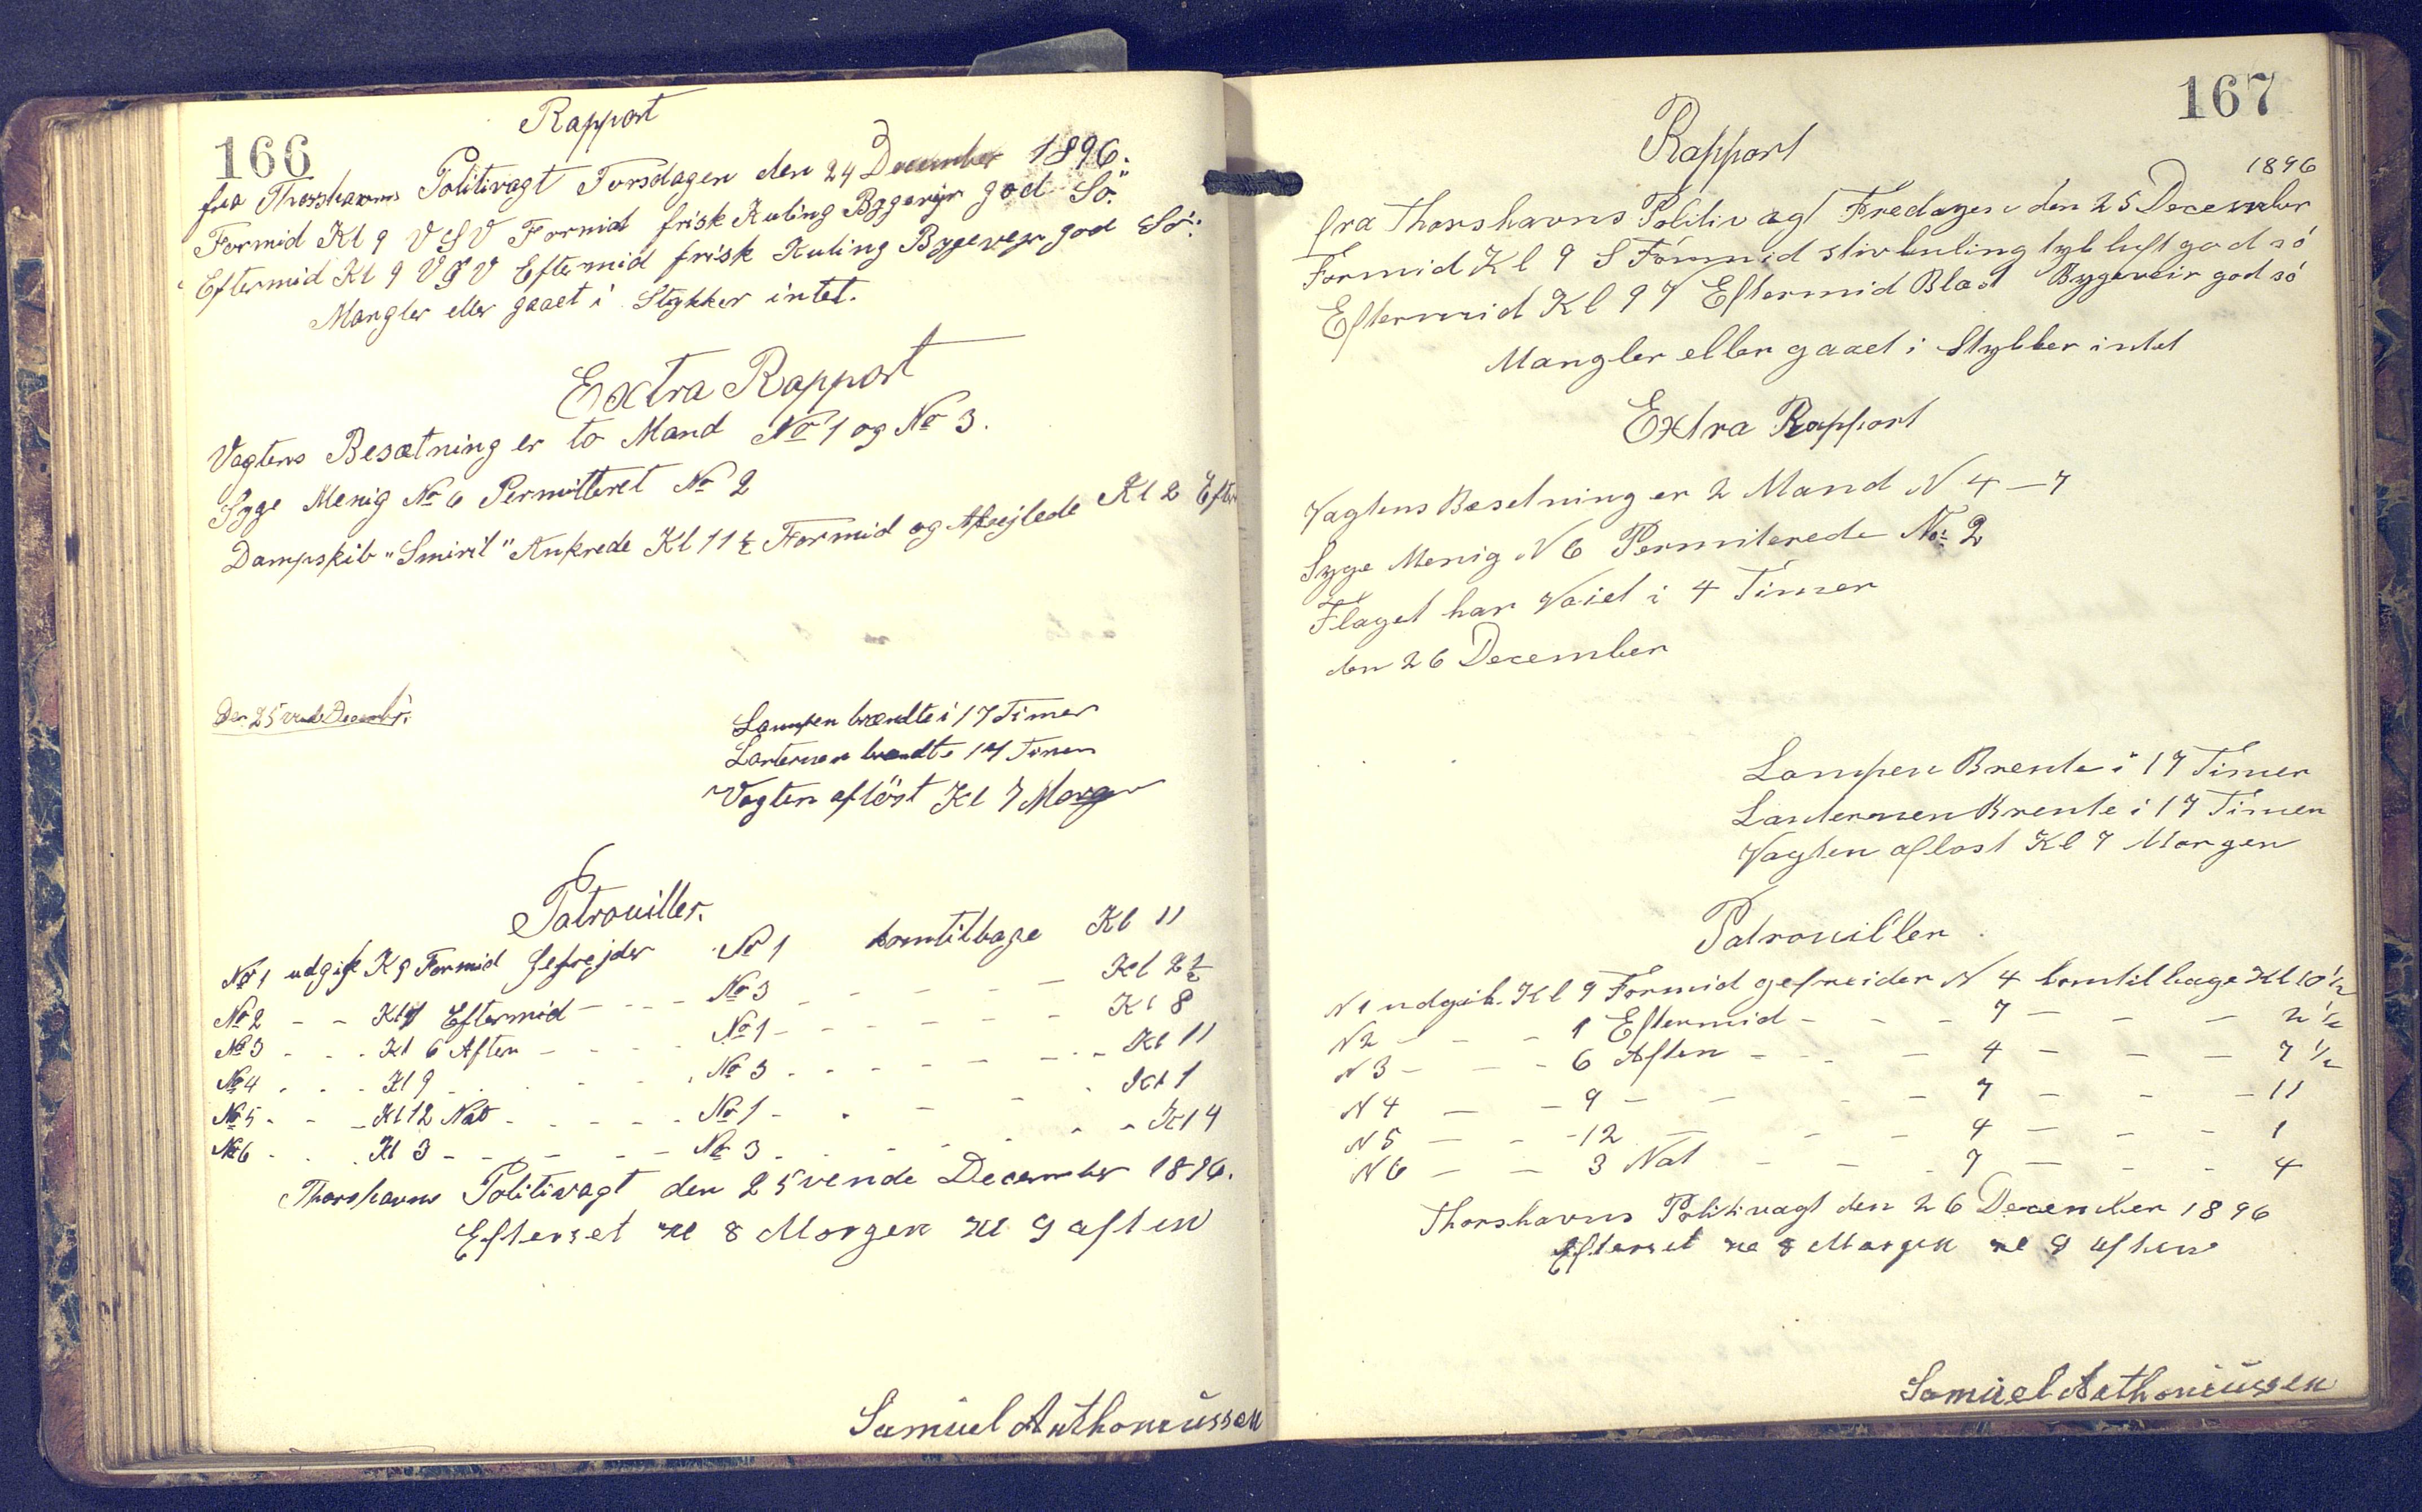 166
Rapport
fra Thorshavns Politivagt Torsdagen den 24 December 1896.
Formid Kl 9 VSV Formid frisk Kuling Bygevejr god Sö.
Eftermid Kl 9 VSV Eftermid frisk Kuling Bygevejr god Sö.
Mangler eller gaaet i Stykker intet.
Extra Rapport
Vagtens Besætning er to Mand No 1 og No 3.
Syge Menig No 6 Permitteret No 2
Dampskib "Smiril" Ankrede Kl 11½ Formid og Afsejlede Kl 2 Efter
Den 25vende Decembr.
Lampen brændte i 17 Timer
Lanternen brændte 14 Timer
Vagten aflöst Kl 7 Morgen
Patrouiller.
No 1 udgik Kl 9 Formid Gefrejder No 1 komtilbage Kl 11
No 2 - - Kl 1 Eftermid - - - No 3 - - - - - Kl 2½
No 3 - - - Kl 6 Aften - - - - No 1 - - - - - - Kl 8
No 4 - - - Kl 9 - - - - - No 3 - - - - - - - Kl 11
No 5 - - - Kl 12 Nat - - - - - No 1 - - - - - Kl 1
No 6 - - - Kl 3 - - - - - No 3 - - - - - - Kl 4
Thorshavns Politivagt den 25vende December 1896.
Efterset Kl 8 Morgen Kl 9 aften
Samuel Anthoniussen
167
Rapport
1896
fra Thorshavns Politivagt Fredagen den 25 December
Formid Kl 9 S Formid stivkuling tyk luft god só
Eftermid Kl 9 V Eftermid Blæst Bygeveir god só
Mangler eller gaaet i Stykker intet
Extra Rapport
Vagtens Besetning er 2 Mand N 4 - 7
Syge Menig N 6 Permiterede No 2
Flaget har Vaiet i 4 Timer
den 26 December
Lampen Brente i 17 Timer
Lanternen Brente i 17 Timer
Vagten aflost Kl 7 Morgen
Patrouiller
N 1 udgik Kl 9 Formid gefreider N 4 komtilbage Kl 10½
N 2 - - - 1 Eftermid - - - 7 - - - 2½
N 3 - - - 6 Aften - - - 4 - - - 7½
N 4 - - 9 - - - - 7 - - - 11
N 5 - - - 12 - - - 4 - - - 1
N 6 - - 3 Nat - - - 7 - - - 4
Thorshavns Politivagt den 26 December 1896
Efterset Kl 8 Morgen Kl 9 aften
Samuel Anthoniussen